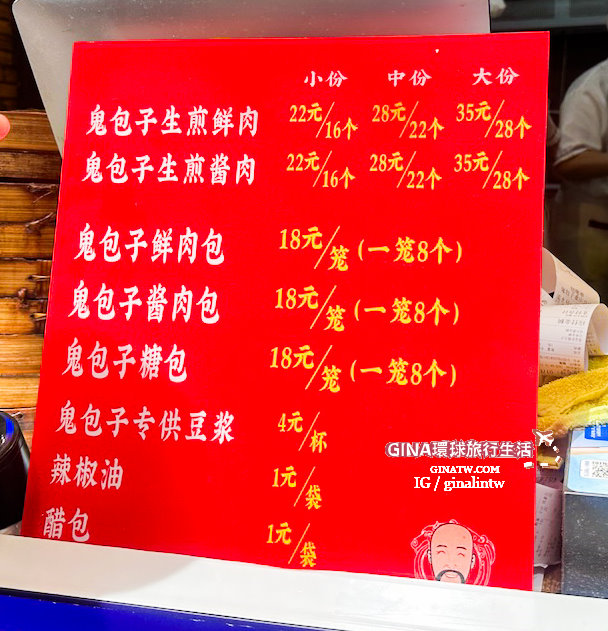 小份 中份 大份
鬼包子生煎鲜肉 22元/16个 28元/22个 35元/28个
鬼包子生煎酱肉 22元/16个 28元/22个 35元/28个
鬼包子鲜肉包 18元/笼(一笼8个)
鬼包子酱肉包 18元/笼(一笼8个)
鬼包子糖包 18元/笼(一笼8个)
鬼包子专供豆浆 4元/杯
辣椒油 1元/袋
醋包 1元/袋
GINA環球旅行生活
GINATW.COM
IG / ginalintw